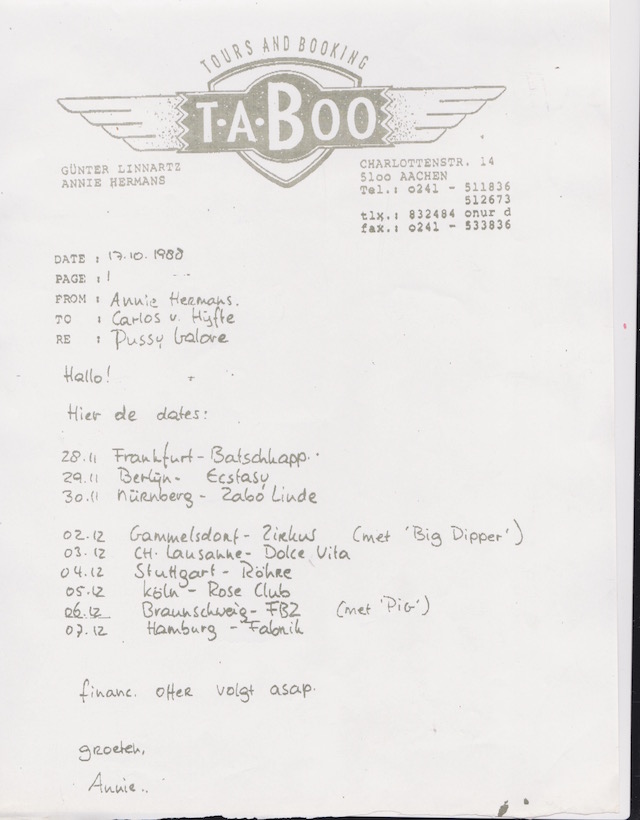 TOURS AND BOOKING
T·A·BOO
GÜNTER LINNARTZ
ANNIE HERMANS
CHARLOTTENSTR. 14
5100 AACHEN
Tel.: 0241 - 511836
512673
tlx.: 832484 onur d
fax.: 0241 - 533836
DATE : 17.10.1988
PAGE : 1
FROM : Annie Hermans.
TO : Carlos v. Hijfte
RE : Pussy Galore
Hallo!
Hier de dates:
28.11 Frankfurt - Batschkapp.
29.11 Berlijn - Ecstasy
30.11 Nürnberg - Zabo Linde
02.12 Gammelsdorf - Zirkus (met 'Big Dipper')
03.12 CH. Lausanne - Dolce Vita
04.12 Stuttgart - Röhre
05.12 Köln - Rose Club
06.12 Braunschweig - FBZ (met 'PiG')
07.12 Hamburg - Fabrik
financ. offer volgt asap.
groeten,
Annie..